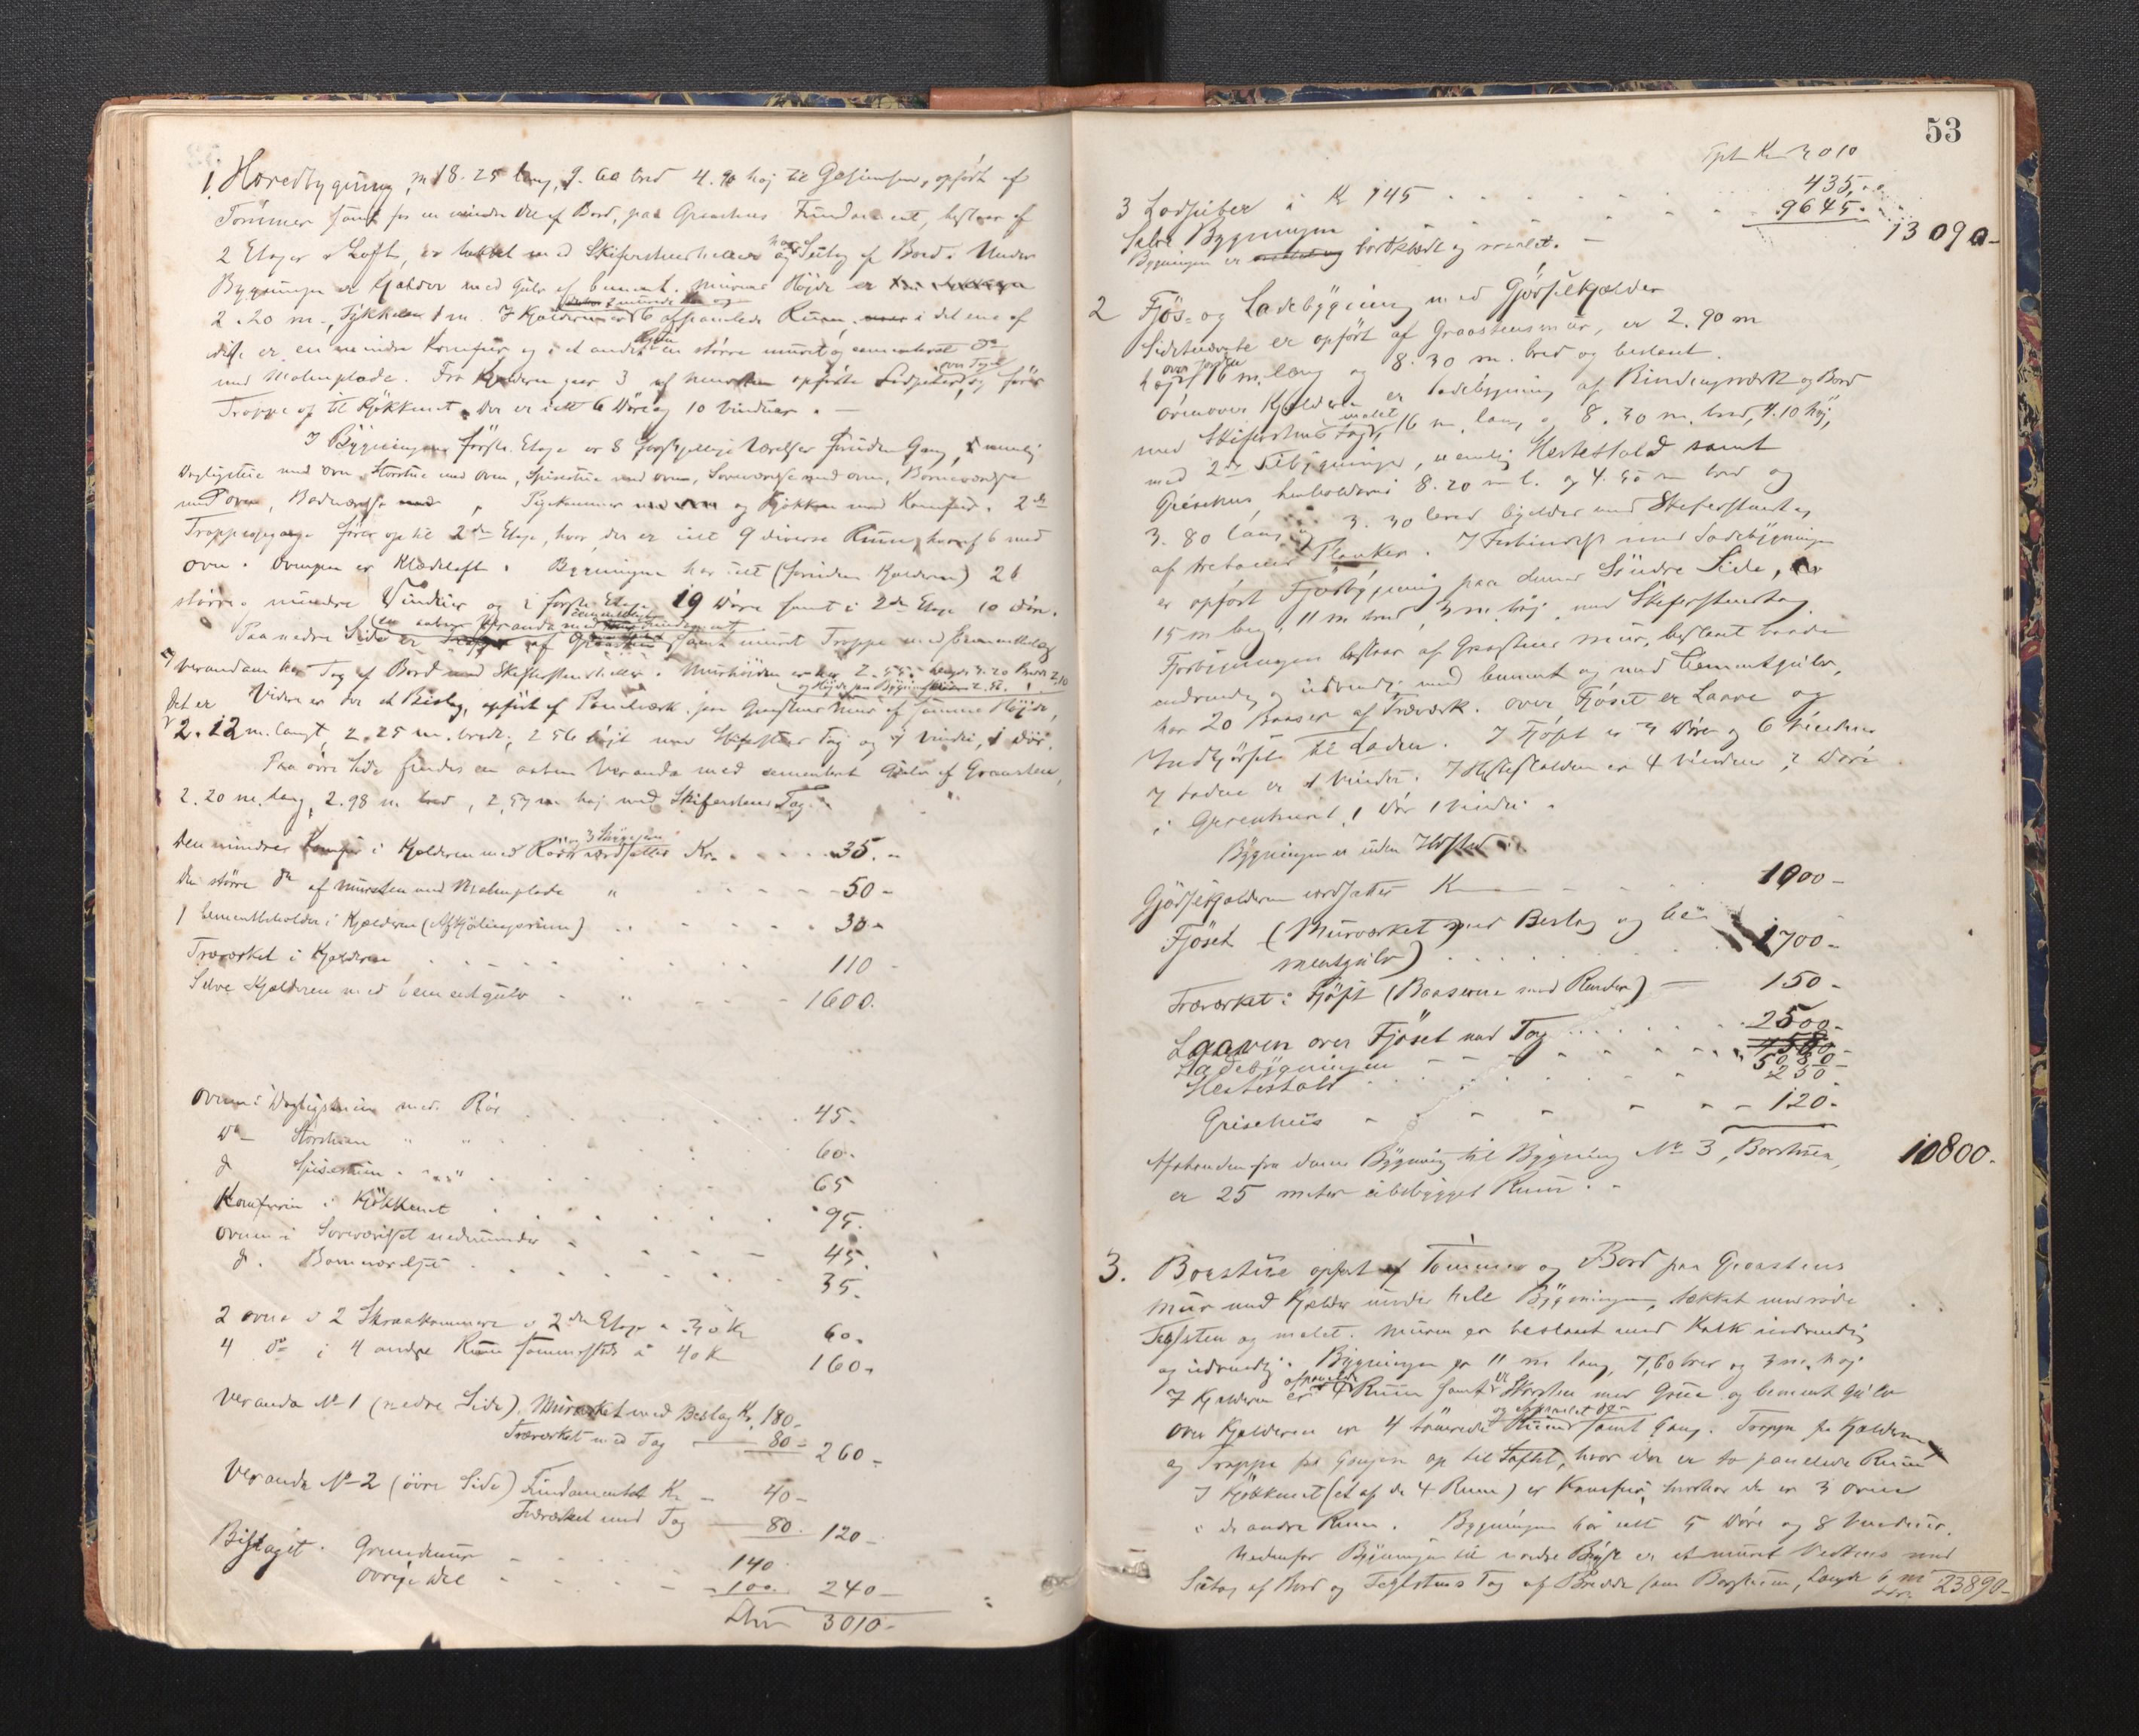 1. Hovedbygning, m 18.25 lang, 9.60 bred 4.90 høj til Gesimsen, opført af
Tømmer samt for en mindre Del af Bord, paa Graastens Fundament, bestaar af
2 Etager & Loft, er tækket med Skiferstensheller og har Sutag af Bord. Under
Bygningen er Kjælder med Gulv af Cement. Murens Højde er
2.20 m., Tykkelse 1 m. I Kjælderen er 6 afpanelede Rum, i det ene af
disse er en mindre Komfur og i et andet Rum en større muret og cementeret do
med Malmplade. Fra Kjælderen gaar 3 af Mursten opførte Ledpiber over Taget og fører
Trappe op til Kjøkkenet. Der er ialt 6 Døre og 10 Vinduer. —
I Bygningens første Etage er 8 forskjellige Værelser foruden Gang, nemlig
Dagligstue med Ovn, Storstue med Ovn, Spisestue med Ovn, Soveværelse med Ovn, Børneværelse
med Ovn, Badeværelse, Pigekammer og Kjøkken med Komfur. 2de
Trappeopgange fører op til 2den Etage, hvor der er ialt 9 diverse Rum, hvoraf 6 med
Ovn. Ovenpaa er Klædeloft. Bygningen har ialt (foruden Kjælderen) 26
større & mindre Vinduer og i første Etage 19 Døre samt i 2den Etage 10 Døre.
Paa nedre Side er en aaben Veranda med Fundament af Graasten samt muret Trappe med Cementbelæg
Verandaen har Tag af Bord med Skiferstensheller. Murhøjden er her 2.55. Længde 3.20 Bredde 2.10
og Højde paa Bygning 2.56.
Videre er der et Bislag, opført af Panelværk paa Graastens Mur af samme Højde,
Det er 2.12 m. langt, 2.25 m. bredt, 2.56 højt med Skiferstens Tag og 4 Vindu, 1 Dør.
Paa øvre Side findes en aaben Veranda med cementeret Gulv af Graasten,
2.20 m. lang, 2.98 m bred, 2,57 m høj med Skiferstens Tag. "
Den mindre Komfur i Kjælderen med Rør værdsættes Kr. . . . . 35. -
Den større do af Mursten med Malmplade " - - - - - 50 -
1 Cementbeholder i Kjælderen (Afkjølingsrum) . . . . . 30 -
Træværket i Kjælderen . . . . . . . 110 -
Selve Kjælderen med Cementgulv - " - - - 1600.
Ovnen i Dagligstuen med Rør . . . . . . 45 -
Do - Storstuen " " . . . . . 60 -
d Spisestuen . " " " . . . . . 65
Komfuren i Kjøkkenet . . . . . . 95.
Ovnen i Soveværelset nedenunder - - - - 45.
d. Børneværelset . . . . . . 35.
2 Ovne i 2 Skraakammere i 2den Etage a 30 Kr 60 -
4 do i 4 andre Rum sammesteds à 40 Kr 160 -
Veranda No 1 (nedre Side). Murværket med Beslag Kr. 180 -
Træværket med Tag — 80 - 260 -
Veranda No 2 (øvre Side) Fundamentet Kr — 40 -
Træværket med Tag — 80. 120 -
Bislaget. Grundmur - - - - 140
Øvrige Del - - - - 100. 240 -
3010 -
53
Tpt. Kr. 3010
3 Ledpiber à Kr 145 . . . . . . 435, - -
Selve Bygningen . . . . . . 9645. - 13090 -
Bygningen er bordklædt og malet. —
2 Fjøs- og Ladebygning med Gjødselkjælder
Sidstnævnte er opført af Graastensmur, er 2.90 m
høj over Jorden 16 m. lang og 8.30 m. bred og beslaat.
Ovenover Kjælderen er Ladebygning af Bindingsværk og Bord
med Skiferstens Tag, malet, 16 m. lang, 8.30 m. bred, 4.10 høj,
med 2de Tilbygninger, nemlig Hestestald samt
Grisehus, henholdsvis 8.20 m l. og 4.50 m bred og
3.80 lang og 3.30 bred med Skiferstenstag
af Planker. I Forbindelse med Ladebygningen
er opført Fjøsbygning paa dennes Søndre Side,
15 m lang, 11 m bred, 3 m høj, med Skiferstenstag.
Fjøsbygningen bestaar af Graastens Mur, beslaaet baade
indvendig og udvendig med Cement og med Cementgulv,
har 20 Baaser af Træværk. Over Fjøset er Laave og
Indkjørsel til Laden. I Fjøset er 3 Døre og 6 Vinduer
I Laden er 1 Vindu. I Hestestalden er 4 Vinduer, 2 Døre
i Grisehuset 1 Dør 1 Vindu. -
Bygningen er uden Ildsted.
Gjødselkjælderen værdsættes Kr — - - - 1000 -
Fjøset (Murværket med Beslag og Ce-
mentgulv) . . . . . . . 1700 -
Træværket i Fjøset (Baaserne med Render) — 150 -
Laaven over Fjøset med Tag . . . . . . 2500 -
Ladebygningen - - - - - - 5
Hestestald . . . . . . 250
Grisehus - - - - - - 120 -
10800 -
Afstanden fra denne Bygning til Bygning No 3, Borstuen,
er 25 meter ubebygget Rum. -
3. Borstue opført af Tømmer og Bord paa Graastens
Mur med Kjælder under hele Bygningen, tækket med røde
Teglsten og malet. Muren er beslaaet med Kalk indvendig
og udvendig. Bygningen er 11 m lang, 7,60 bred og 3 m. høj.
I Kjælderen er 4 afpanelede Rum samt Skorsten med Grue og Cement Gulv
Over Kjælderen er 4 tømrede og afpanelede Rum samt Gang. Trappe fra Kjælderen
og Trappe fra Gangen op til Loftet, hvor der er to panelede Rum
I Kjøkkenet (et af de 4 Rum) er Komfur, hvorhos der er 3 Ovne
i de andre Rum. Bygningen har ialt 5 Døre og 8 Vinduer.
Nedenfor Bygningen til nordre er et muret Vedhus med
Sutag af Bord og Teglstens Tag af Bredde som Borstuen, Længde 6 m
23890 -